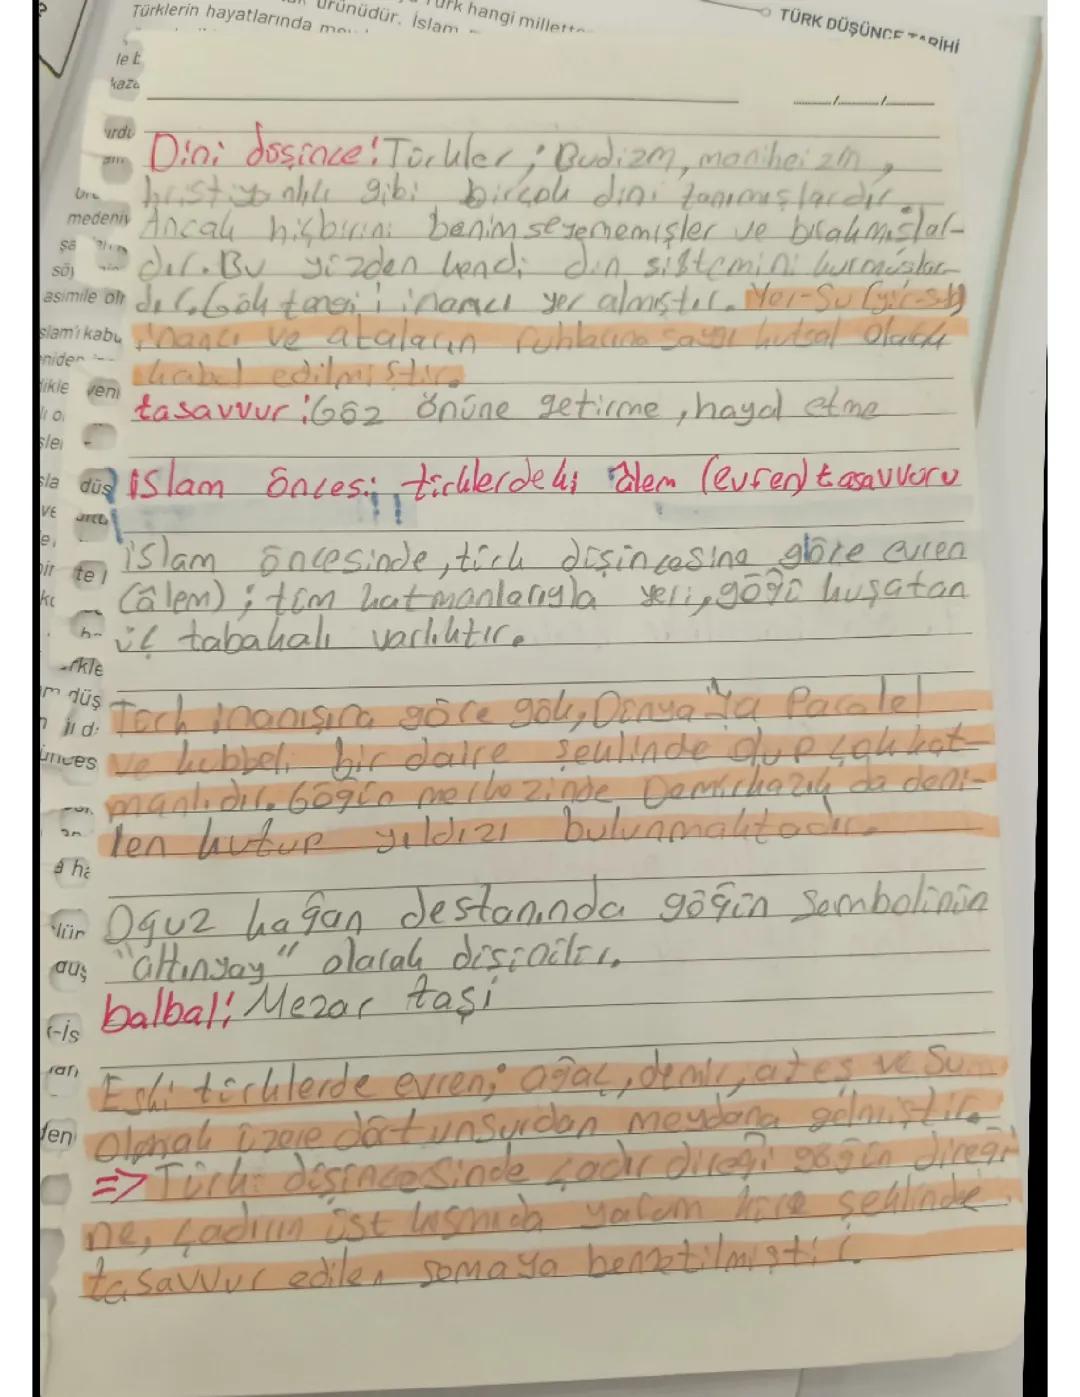 Türk hangi millette
ürünüdür. İslam
Türklerin hayatlarında
TÜRK DÜŞÜNCE TARİHİ
kaza
medeniy
asimile
slam'ı kabu
yeni
düş
Dini düşünce: Türkler; Budizm, maniheizm,
hristiyanlık gibi birçok dini tanımışlardır.
Ancak hiçbirini benimseyememişler ve bırakmışlar-
dır. Bu yüzden kendi din sistemini kurmuşlar-
dır. Gök tanrı inancı yer almıştır. Yer-Su (yir-sub)
inancı ve ataların ruhlarına saygı kutsal olarak
kabul edilmiştir.
tasavvur: Göz önüne getirme, hayal etme
islam öncesi türklerdeki âlem (evren) tasavvuru
islam öncesinde, türk düşüncesine göre evren
(âlem); tüm katmanlarıyla yeri, göğü kuşatan
üç tabakalı varlıktır.
Türk inanışına göre gök, Dünya'ya Paralel
ve kubbeli bir daire şeklinde olup çok kat-
manlıdır. Göğün merkezinde Demirkazık da deni-
len kutup yıldızı bulunmaktadır.
Oğuz kağan destanında göğün sembolünün
"altınyay" olarak düşünülür.
balbal: Mezar taşı
Eski türklerde evren; ağaç, demir, ateş ve Su
olmak üzere dört unsurdan meydana gelmiştir.
=> Türk düşüncesinde çadır direği göğün direği
ne, çadırın üst kısmıda yarım küre şeklinde
tasavvur edilen semaya benzetilmiştir.